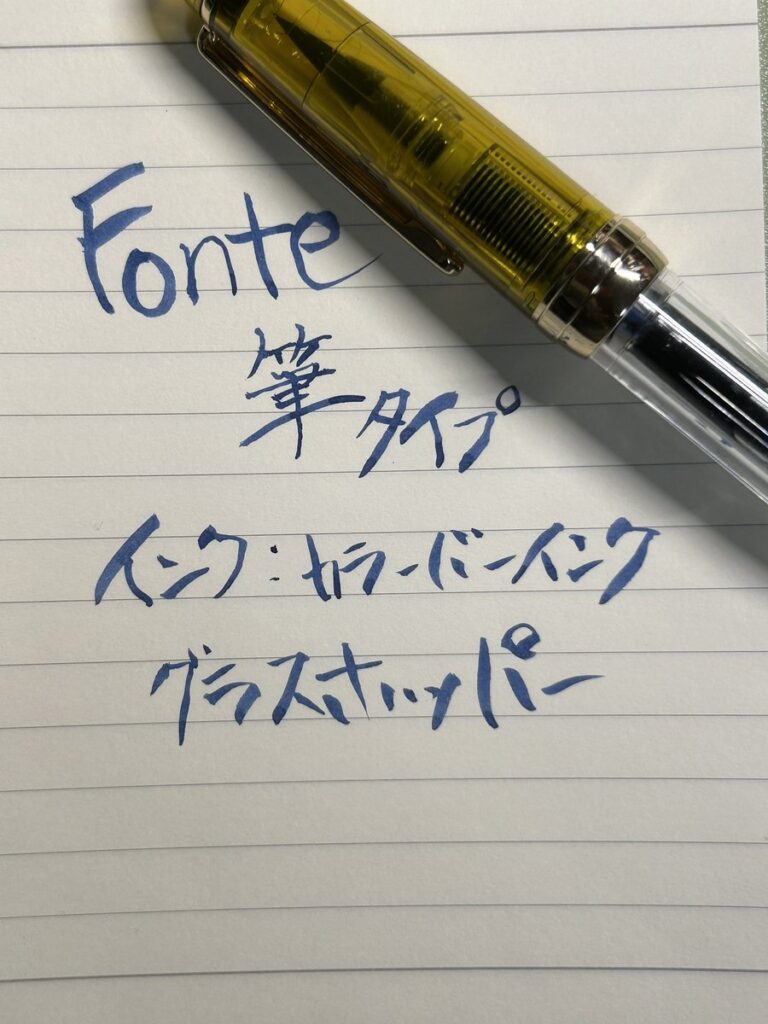 Fonte
筆タイプ
インク:カラーバーインク
グラスホッパー